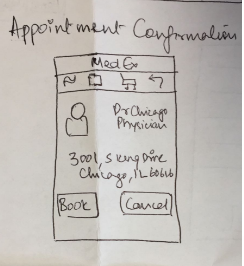 Appointment Confirmation
MedEx
Dr Chicago
Physician
3001, S King Drive
Chicago, IL 60616
Book
Cancel